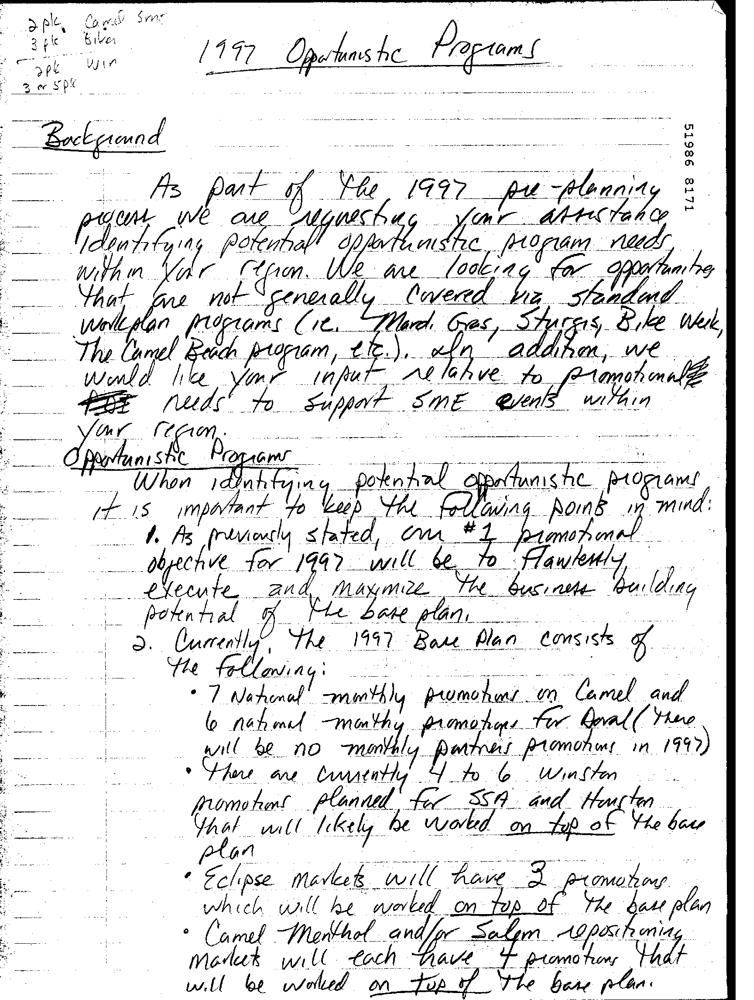 2 pk. Camel Sme
3 pk Biker
2pk Win
3 or 5pk
1997 Opportunistic Programs
Background
51986 8171
As part of the 1997 pre-planning
process we are requesting your assistance
identifying potential opportunistic program needs
within your region. We are looking for opportunities
that are not generally covered via standard
workplan programs (ie. Mardi Gras, Sturgis, Bike Week,
The Camel Beach program, etc.). In addition, we
would like your input relative to promotional
needs to support SME events within
your region.
Opportunistic Programs
When identifying potential opportunistic programs
it is important to keep the following points in mind:
1. As previously stated, our #1 promotional
objective for 1997 will be to flawlessly
execute and maximize the business building
potential of the base plan.
2. Currently, the 1997 Base Plan consists of
the following:
• 7 National monthly promotions on Camel and
6 national monthy promotions for Doral (there
will be no monthly partners promotions in 1997)
• There are currently 4 to 6 Winston
promotions planned for SSA and Houston
that will likely be worked on top of the base
plan
• Eclipse markets will have 3 promotions
which will be worked on top of the base plan
• Camel Menthol and/or Salem repositioning
markets will each have 4 promotions that
will be worked on top of the base plan.